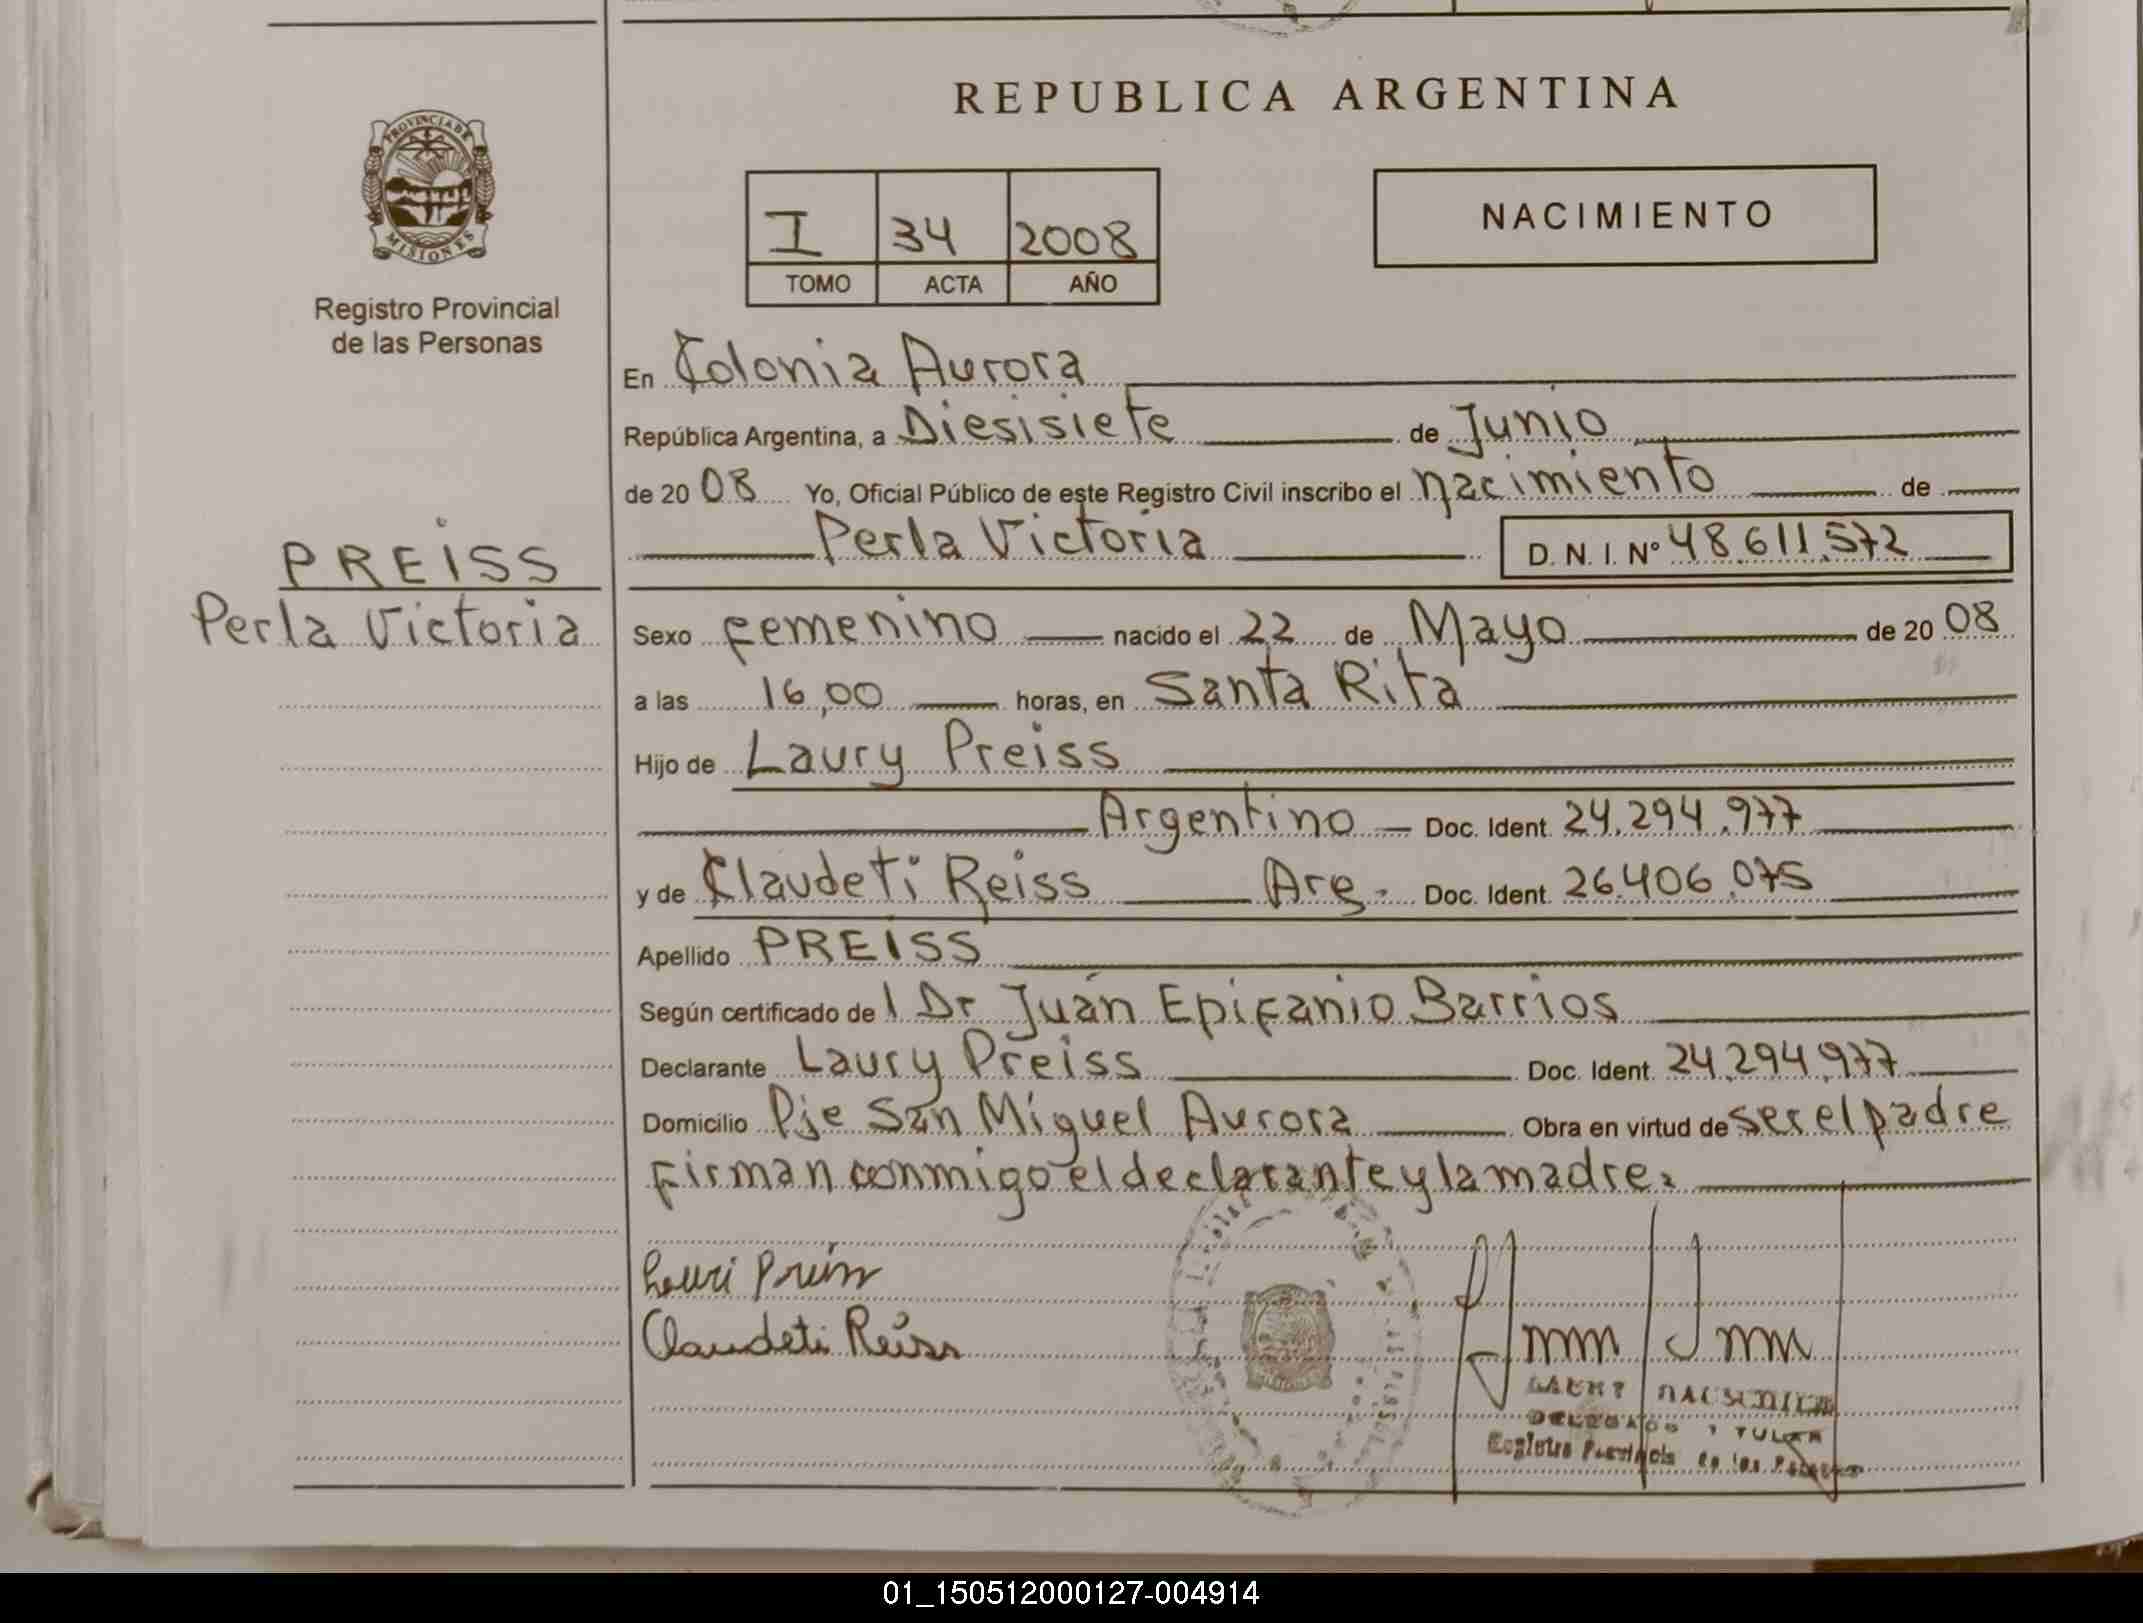 REPUBLICA ARGENTINA
PROVINCIA DE
MISIONES
Registro Provincial
de las Personas
I 34 2008
TOMO ACTA AÑO
NACIMIENTO
En Colonia Aurora
República Argentina, a Diesisiete de Junio
de 20 08 Yo, Oficial Público de este Registro Civil inscribo el nacimiento de
Perla Victoria D. N. I. Nº 48.611.572
PREISS
Perla Victoria
Sexo Femenino nacido el 22 de Mayo de 20 08
a las 16,00 horas, en Santa Rita
Hijo de Laury Preiss
Argentino Doc. Ident. 24.294.977
y de Claudeti Reiss Arg. Doc. Ident. 26.406.075
Apellido PREISS
Según certificado de l Dr Juan Epifanio Barrios
Declarante Laury Preiss Doc. Ident. 24.294.977
Domicilio Pje San Miguel Aurora Obra en virtud de ser el padre
Firman conmigo el declarante y la madre.
Claudeti Reiss
01_150512000127-004914